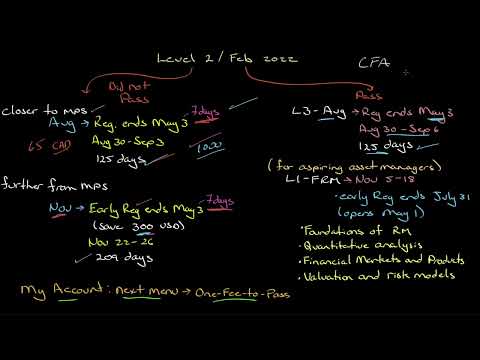 Level 2 / Feb 2022
CFA
Did not
Pass
closer to MPS
Aug → Reg. ends May 3
7 days
65 CAD
Aug 30-Sep 3
125 days
1000
further from MPS
Nov → Early Reg ends May 3
7days
(save 300 USD)
Nov 22-26
209 days
Pass
L3-Aug → Reg ends May 3
Aug 30-Sep 6
125 days
(for aspiring asset managers)
L1-FRM → Nov 5-18
·early Reg ends July 31
(opens May 1)
·Foundations of RM
·Quantitative analysis
·Financial Markets and Products
·Valuation and risk models
My Account: Next Menu → One-Fee-to-Pass